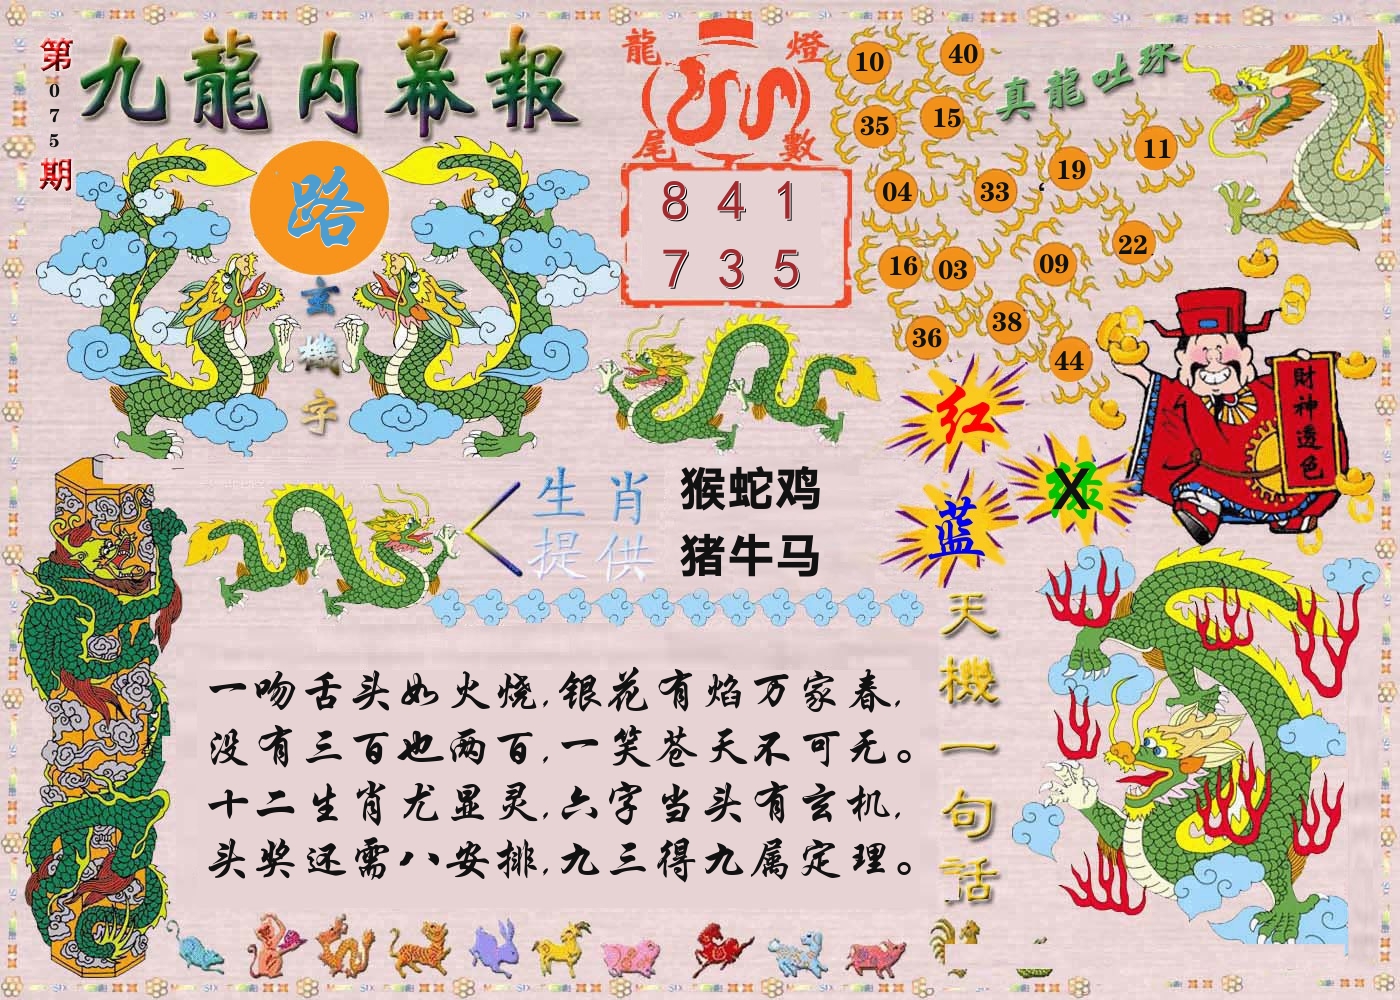 第075期
九龍内幕報
路
玄機字
龍燈尾數
8 4 1
7 3 5
真龍吐珠
10
40
35
15
11
19
04
33
22
16
03
09
36
38
44
红
蓝
绿
X
財神透色
生肖
提供
猴蛇鸡
猪牛马
天機一句話
一吻舌头如火烧,银花有焰万家春,
没有三百也两百,一笑苍天不可无。
十二生肖尤显灵,六字当头有玄机,
头奖还需八安排,九三得九属定理。